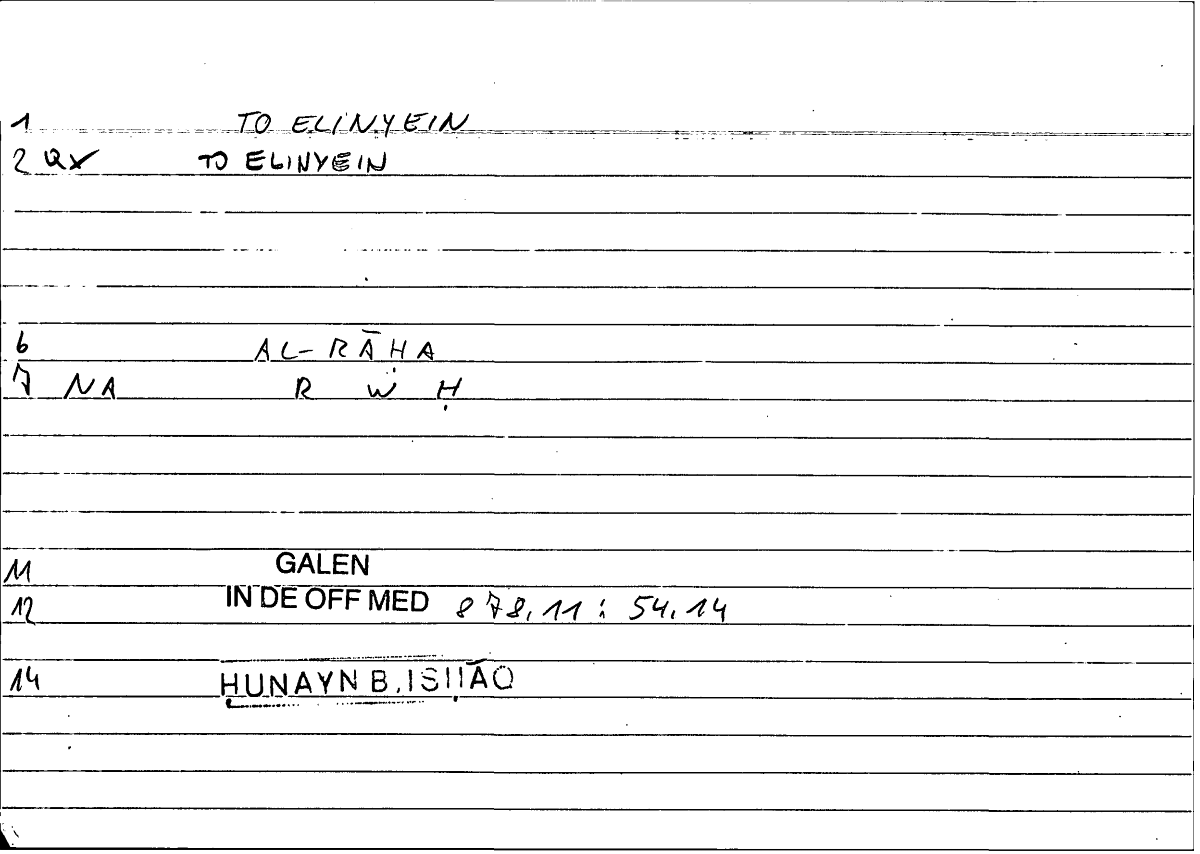 1 TO ELINYEIN
2 QX TO ELINYEIN
6 AL-RĀḤA
7 NA R W Ḥ
11 GALEN
12 IN DE OFF MED 878,11 : 54,14
14 ḤUNAYN B. ISḤĀQ